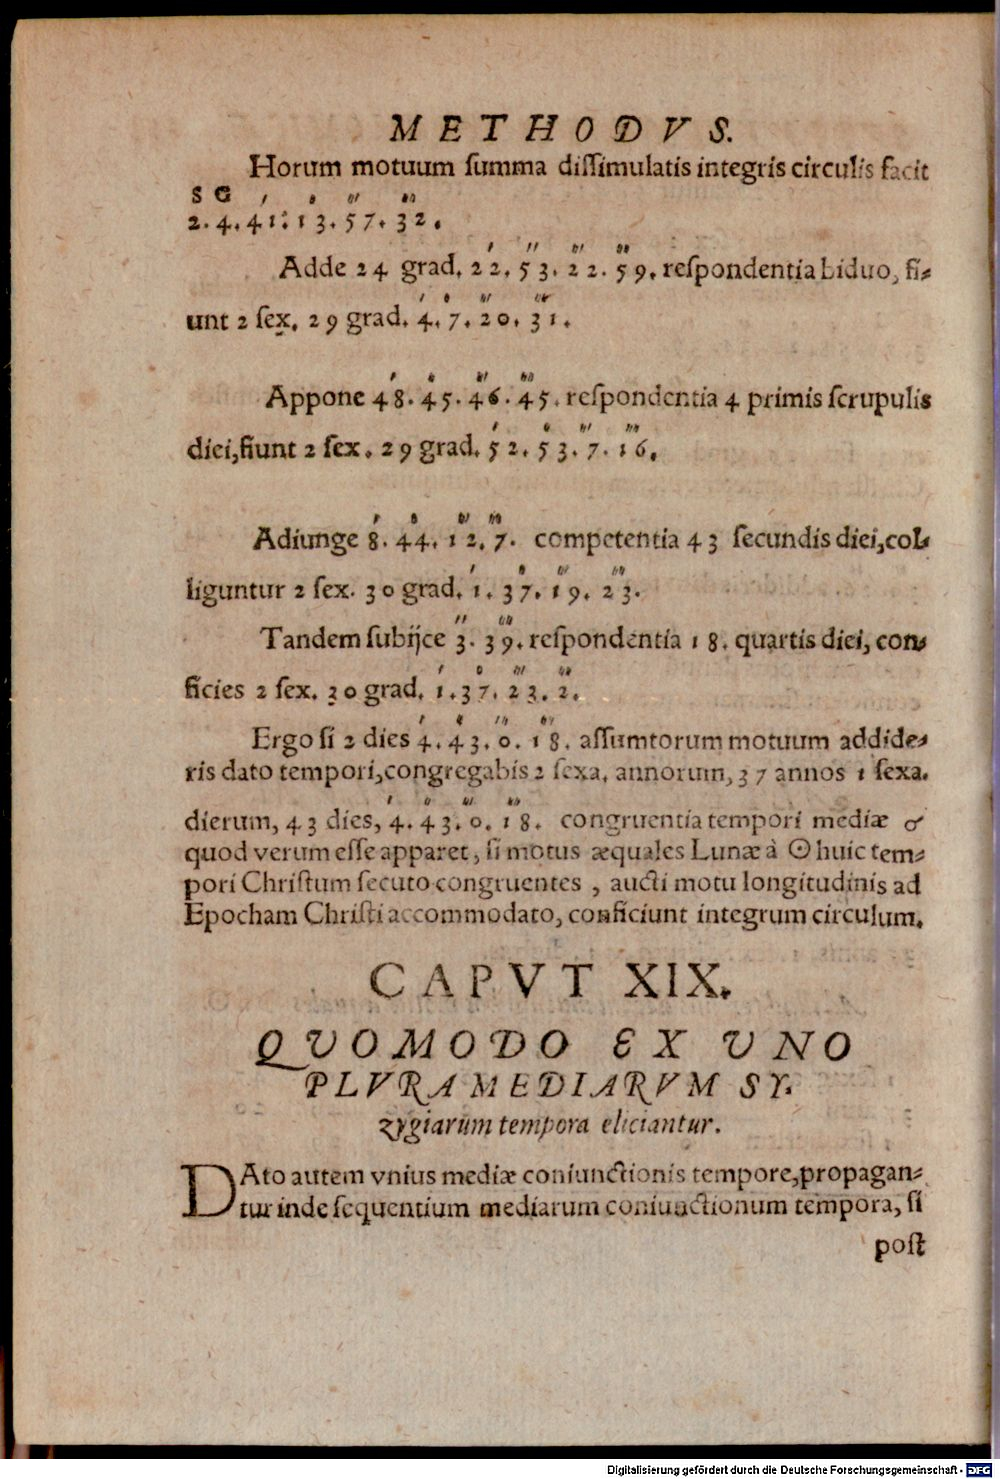 METHODVS.
Horum motuum ſumma diſſimulatis integris circulis facit
S G ′ ″ ‴ ⁗
2. 4. 41. 13. 57. 32.
′ ″ ‴ ⁗
Adde 24 grad. 22. 53. 22. 59. reſpondentia biduo, fi⸗
′ ″ ‴ ⁗
unt 2 ſex. 29 grad. 4. 7. 20. 31.
′ ″ ‴ ⁗
Appone 48. 45. 46. 45. reſpondentia 4 primis ſcrupulis
′ ″ ‴ ⁗
diei, fiunt 2 ſex. 29 grad. 52. 53. 7. 16.
′ ″ ‴ ⁗
Adiunge 8. 44. 12. 7. competentia 43 ſecundis diei, col⸗
′ ″ ‴ ⁗
liguntur 2 ſex. 30 grad. 1. 37. 19. 23.
″ ⁗
Tandem ſubijce 3. 39. reſpondentia 18. quartis diei, con⸗
′ ″ ‴ ⁗
ficies 2 ſex. 30 grad. 1. 37. 23. 2.
′ ″ ‴ ⁗
Ergo ſi 2 dies 4. 43. 0. 18. aſſumtorum motuum addide⸗
ris dato tempori, congregabis 2 ſexa. annorum, 37 annos 1 ſexa.
′ ″ ‴ ⁗
dierum, 43 dies, 4. 43. 0. 18. congruentia tempori mediæ ☌
quod verum eſſe apparet, ſi motus æquales Lunæ à ☉ huic tem⸗
pori Chriſtum ſecuto congruentes, aucti motu longitudinis ad
Epocham Chriſti accommodato, conficiunt integrum circulum.
CAPVT XIX.
QVOMODO EX VNO
PLVRA MEDIARVM SY.
zygiarum tempora eliciantur.
DAto autem vnius mediæ coniunctionis tempore, propagan⸗
tur inde ſequentium mediarum coniunctionum tempora, ſi
poſt
Digitalisierung gefördert durch die Deutsche Forschungsgemeinschaft - DFG